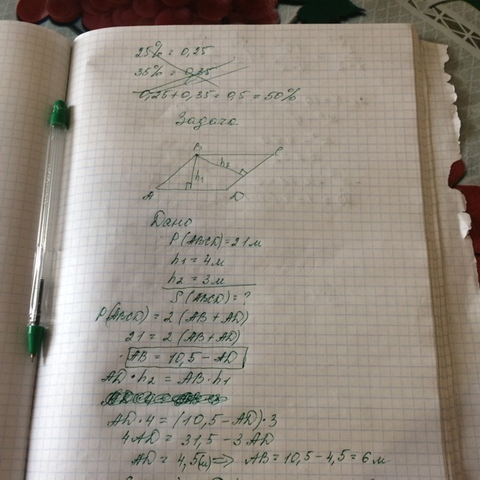 25% = 0,25
35% = 0,35
0,25+0,35 = 0,5 = 50%
Задача
B C
h2
h1
A D
Дано
P(ABCD)=21м
h1 = 4м
h2 = 3м
S(ABCD)=?
P(ABCD) = 2(AB+AD)
21 = 2(AB+AD)
AB = 10,5 - AD
AD·h2 = AB·h1
AD·4 = (10,5-AD)·3
4AD = 31,5 - 3AD
AD = 4,5(м) => AB=10,5-4,5=6м